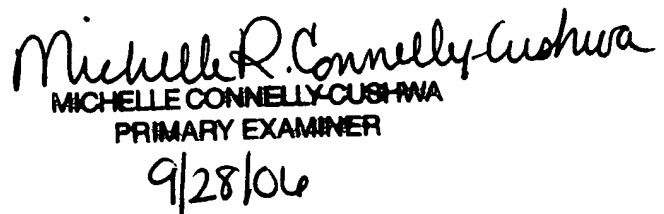 Michelle R. Connelly-Cushwa
MICHELLE CONNELLY-CUSHWA
PRIMARY EXAMINER
9/28/06